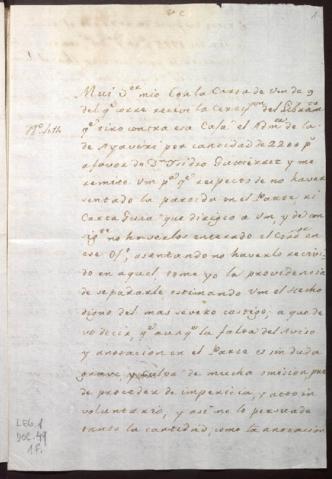 1
Mui S.or mio Con la Carta de Vm de 9
del q.e corre recivi la del Libram.to
q.e giro contra esa Caxa el Adm.or de la
de Ayaviri por cantidad de 2200 p.s
a favor de D.n Isidro Gutierrez y me
remite Vm p.a q.e respecto de no haver
sentado la partida en el Parte ni
Carta Guia que dirigio a Vm, y de con
no haverlos enterado el en
ese Of.o, asentando no haverlo recivi
do en aquel, tome yo la providencia
de separarle estimando Vm el hecho
digno del mas severo castigo; a que de
vo decir, q.e aunq.e la falta del Aviso
y anotacion en el Parte es sin duda
grave, y culpa de mucha omision, pue
de proceder de impericia, y acto in
voluntario, y asi no lo persuade
tanto la cantidad, como la anotacion
LEG. 1
DOC. 49
1 F.